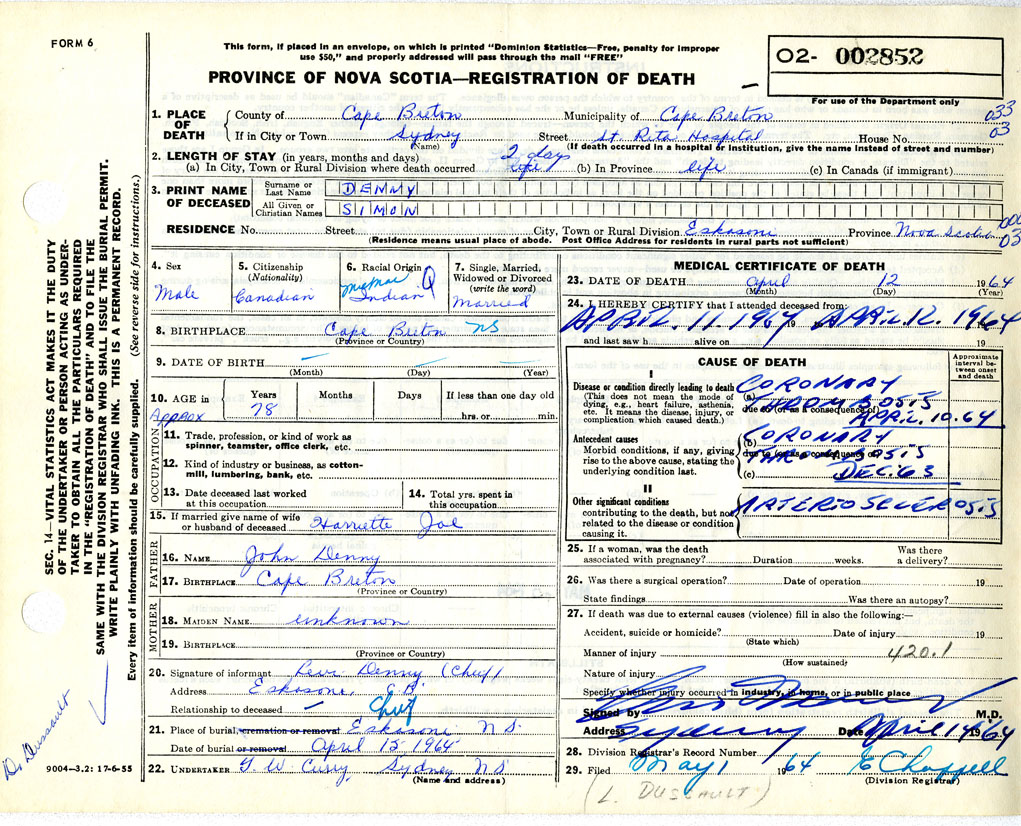 FORM 6
This form, if placed in an envelope, on which is printed "Dominion Statistics—Free, penalty for improper
use $50," and properly addressed will pass through the mail "FREE"
PROVINCE OF NOVA SCOTIA—REGISTRATION OF DEATH
02- 002852
For use of the Department only
1. PLACE OF DEATH
County of Cape Breton Municipality of Cape Breton 033
If in City or Town Sydney Street St. Rita Hospital House No. 03
(Name) (If death occurred in a hospital or institution, give the name instead of street and number)
2. LENGTH OF STAY (in years, months and days) 2 days
(a) In City, Town or Rural Division where death occurred (b) In Province life (c) In Canada (if immigrant)
3. PRINT NAME OF DECEASED
Surname or Last Name DENNY
All Given or Christian Names SIMON
RESIDENCE No. Street City, Town or Rural Division Eskasoni Province Nova Scotia 03
(Residence means usual place of abode. Post Office Address for residents in rural parts not sufficient)
4. Sex Male
5. Citizenship (Nationality) Canadian
6. Racial Origin Micmac Indian
7. Single, Married, Widowed or Divorced (write the word) Married
8. BIRTHPLACE Cape Breton NS
(Province or Country)
9. DATE OF BIRTH — — —
(Month) (Day) (Year)
10. AGE in Approx Years 78 Months Days If less than one day
hrs. or min.
OCCUPATION
11. Trade, profession, or kind of work as
spinner, teamster, office clerk, etc.
12. Kind of industry or business, as cotton-
mill, lumbering, bank, etc.
13. Date deceased last worked
at this occupation
14. Total yrs. spent in
this occupation
15. If married give name of wife
or husband of deceased Harriette Joe
FATHER
16. NAME John Denny
17. BIRTHPLACE Cape Breton
(Province or Country)
MOTHER
18. MAIDEN NAME unknown
19. BIRTHPLACE
(Province or Country)
20. Signature of informant Levi Denny (Chief)
Address Eskasoni, C.B.
Relationship to deceased — Chief
21. Place of burial, cremation or removal Eskasoni NS
Date of burial or removal April 15 1964
22. UNDERTAKER T. W. Curry Sydney NS
(Name and address)
MEDICAL CERTIFICATE OF DEATH
23. DATE OF DEATH April 12 1964
(Month) (Day) (Year)
24. I HEREBY CERTIFY that I attended deceased from:
APRIL. 11. 1964 19 APRIL 12. 1964
and last saw h alive on 19
CAUSE OF DEATH
Approximate interval between onset and death
I
Disease or condition directly leading to death
(This does not mean the mode of
dying, e.g., heart failure, asthenia,
etc. It means the disease, injury, or
complication which caused death.)
(a) CORONARY
THROMBOSIS
due to (or as a consequence of)
APRIL. 10. 64
Antecedent causes
Morbid conditions, if any, giving
rise to the above cause, stating the
underlying condition last.
(b) CORONARY
THROMBOSIS
due to (or as a consequence of)
(c) DEC. 63
II
Other significant conditions
contributing to the death, but not
related to the disease or condition
causing it.
ARTERIOSCLEROSIS
25. If a woman, was the death
associated with pregnancy? Duration weeks. Was there
a delivery?
26. Was there a surgical operation? Date of operation 19
State findings Was there an autopsy?
27. If death was due to external causes (violence) fill in also the following:—
Accident, suicide or homicide? Date of injury 19
(State which)
Manner of injury 420.1
(How sustained)
Nature of injury
Specify whether injury occurred in industry, in home, or in public place
Signed by M.D.
Address Sydney Date April 14 1964
28. Division Registrar's Record Number
29. Filed May 1 1964 E Chappell
(Division Registrar)
(L. DUSSAULT)
SEC. 14—VITAL STATISTICS ACT MAKES IT THE DUTY
OF THE UNDERTAKER OR PERSON ACTING AS UNDER-
TAKER TO OBTAIN ALL THE PARTICULARS REQUIRED
IN THE "REGISTRATION OF DEATH" AND TO FILE THE
SAME WITH THE DIVISION REGISTRAR WHO SHALL ISSUE THE BURIAL PERMIT.
WRITE PLAINLY WITH UNFADING INK. THIS IS A PERMANENT RECORD.
Every item of information should be carefully supplied. (See reverse side for instructions.)
D. Dussault
9004—3.2: 17-6-55